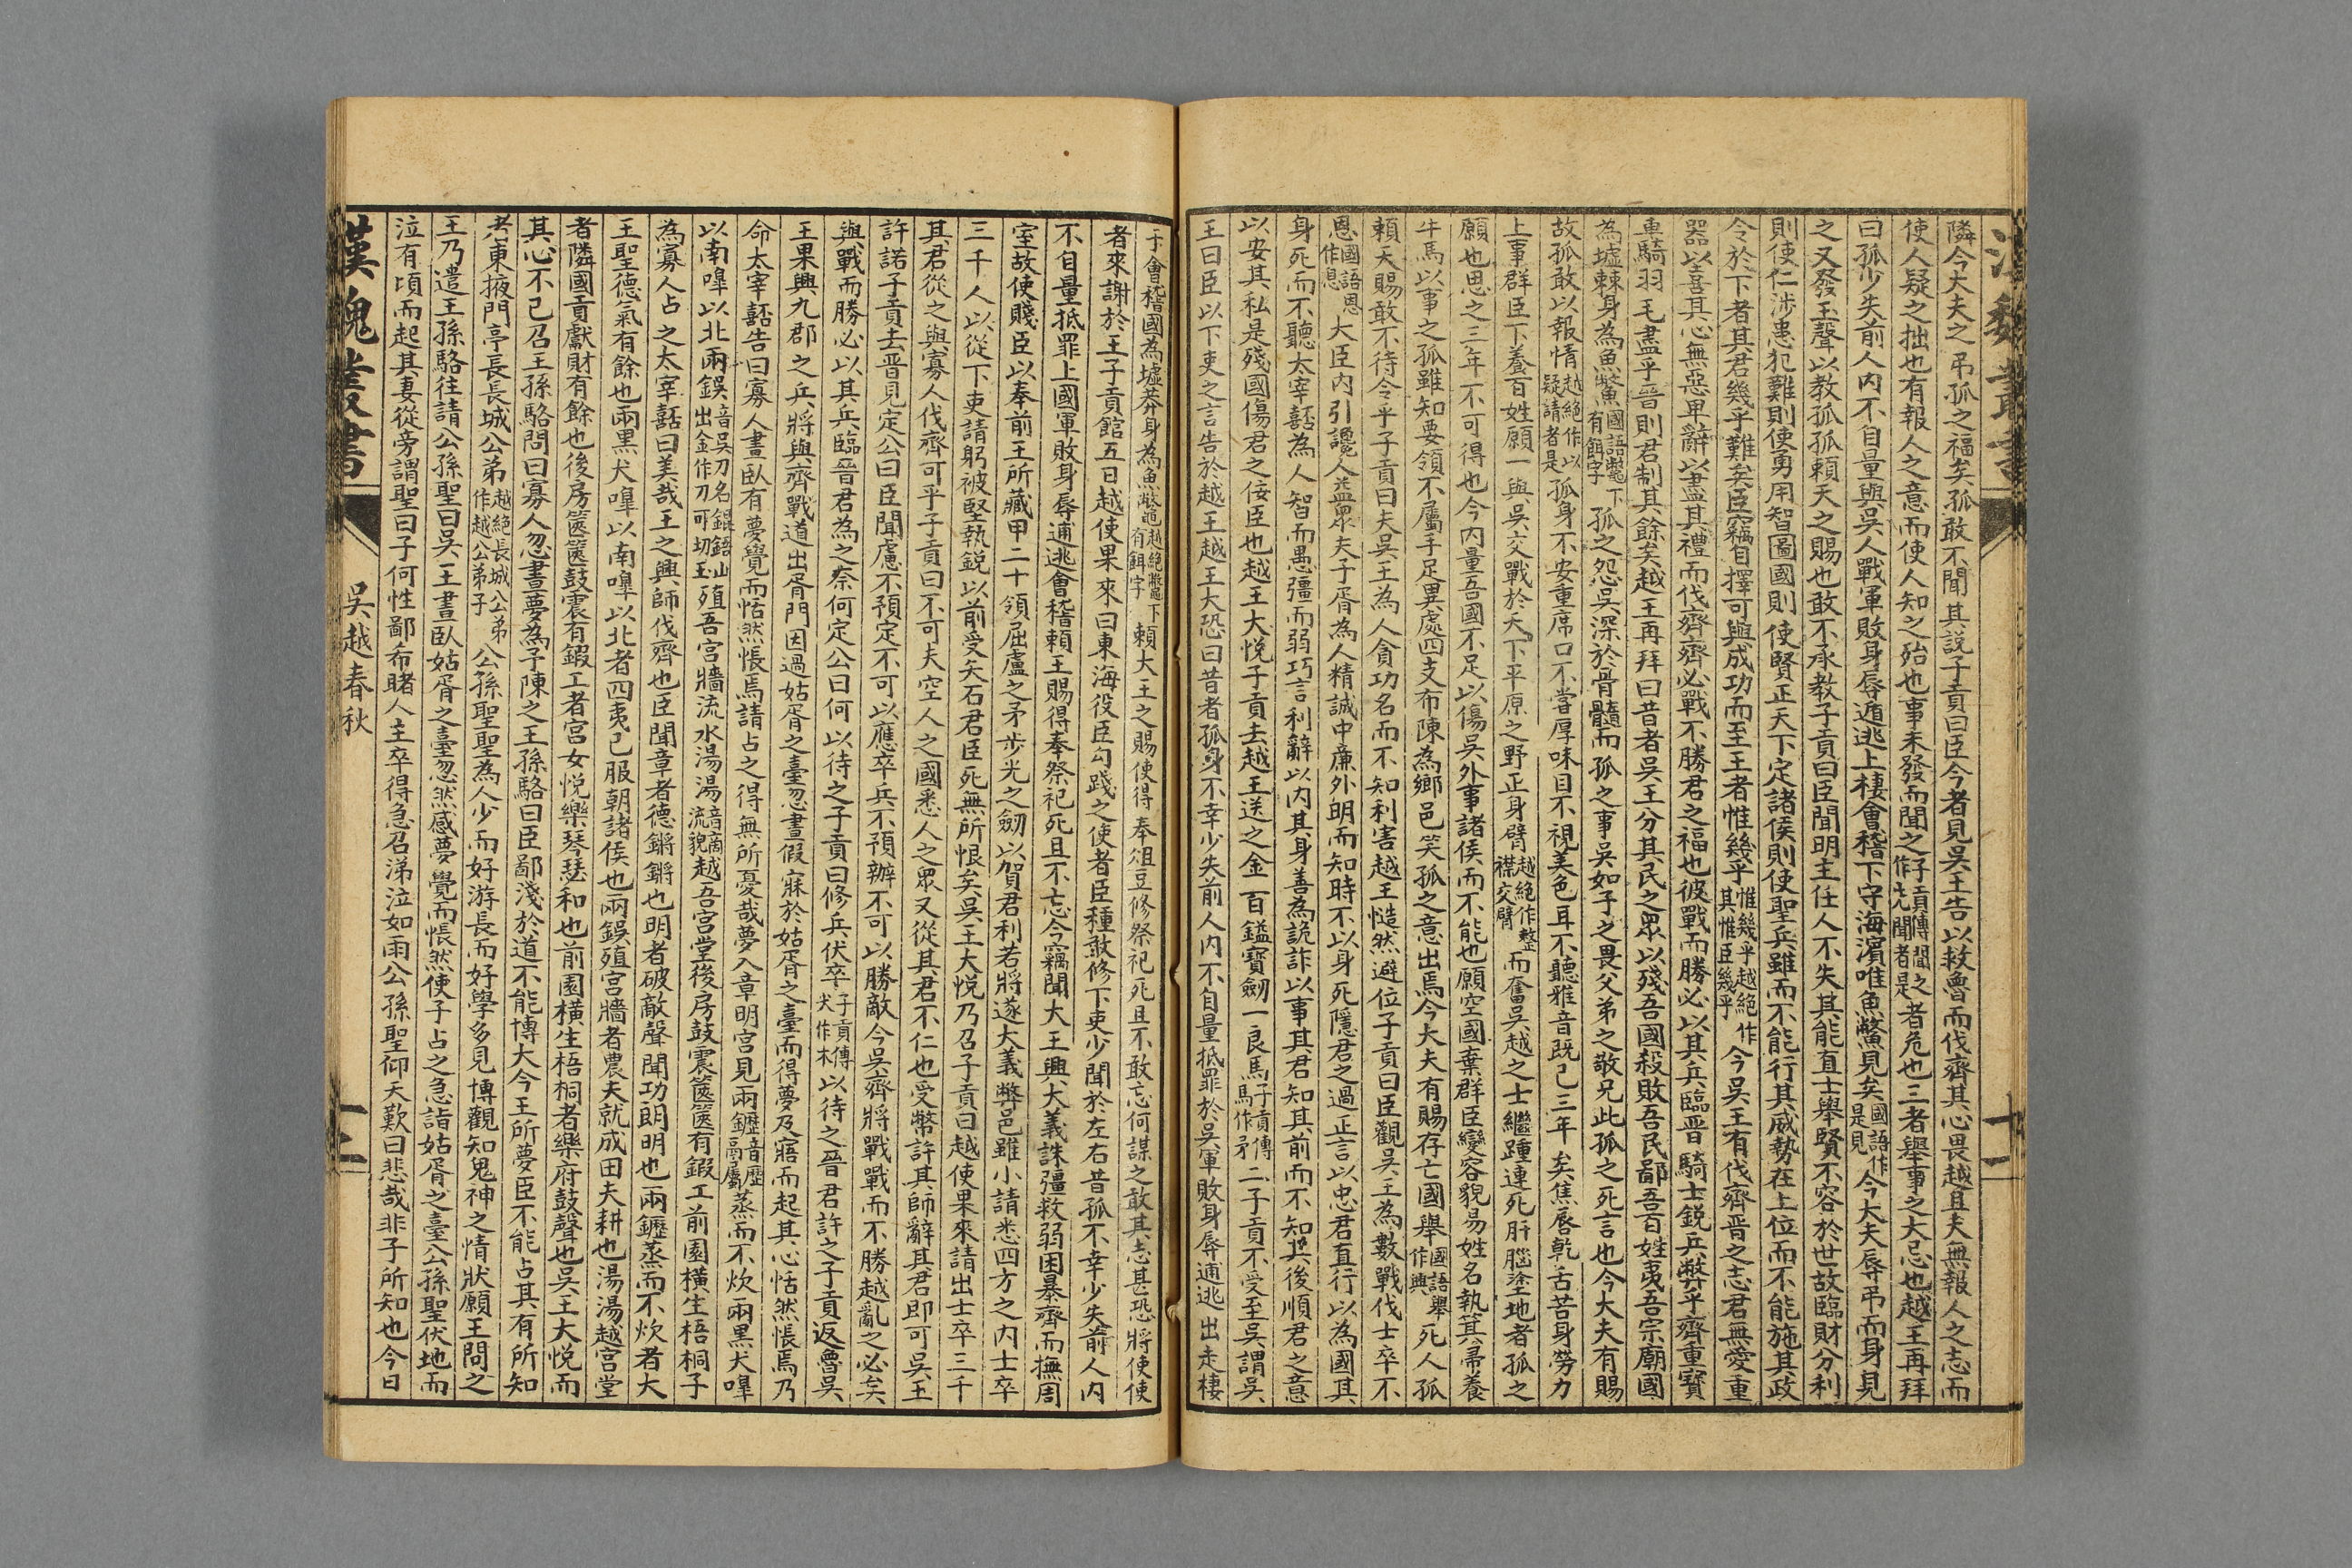 隣今大夫之弔孤之福矣孤敢不聞其説子貢曰臣今者見吳王告以救魯而伐齊其心畏越且夫無報人之志而
使人疑之拙也有報人之意而使人知之殆也事未發而聞之子貢傳聞之作先聞者是者危也三者舉事之大忌也越王再拜
曰孤少失前人內不自量與吳人戰軍敗身辱遁逃上棲會稽下守海濱唯魚鱉見矣國語作是見今大夫辱弔而身見
之又發玉聲以教孤孤賴天之賜也敢不承教子貢曰臣聞明主任人不失其能直士舉賢不容於世故臨財分利
則使仁涉患犯難則使勇用智圖國則使賢正天下定諸侯則使聖兵雖而不能行其威勢在上位而不能施其政
令於下者其君幾乎難矣臣竊自擇可與成功而至王者惟幾乎惟幾乎越絕作其惟臣幾乎今吳王有伐齊晋之志君無愛重
器以喜其心無惡卑辭以盡其禮而伐齊齊必戰不勝君之福也彼戰而勝必以其兵臨晋騎士鋭兵弊乎齊重寶
車騎羽毛盡乎晋則君制其餘矣越王再拜曰昔者吳王分其民之眾以殘吾國殺敗吾民鄙吾百姓夷吾宗廟國
為墟棘身為魚鱉國語鱉下有餌字孤之怨吳深於骨髓而孤之事吳如子之畏父弟之敬兄此孤之死言也今大夫有賜
故孤敢以報情越絕作以疑請者是孤身不安重席口不嘗厚味目不視美色耳不聽雅音既已三年矣焦脣乾舌苦身勞力
上事群臣下養百姓願一與吳交戰於天下平原之野正身臂越絕作整襟交臂而奮吳越之士繼踵連死肝腦塗地者孤之
願也思之三年不可得也今內量吾國不足以傷吳外事諸侯而不能也願空國棄群臣變容貌易姓名執箕帚養
牛馬以事之孤雖知要領不屬手足異處四支布陳為鄉邑笑孤之意出焉今大夫有賜存亡國舉國語舉作興死人孤
賴大賜敢不待令乎子貢曰夫吳王為人貪功名而不知利害越王慥然避位子貢曰臣觀吳王為數戰伐士卒不
恩國語恩作息大臣內引讒人益眾夫子胥為人精誠中廉外明而知時不以身死隱君之過正言以忠君直行以為國其
身死而不聽太宰嚭為人智而愚彊而弱巧言利辭以內其身善為詭詐以事其君知其前而不知其後順君之意
以安其私是殘國傷君之佞臣也越王大悅子貢去越王送之金百鎰寶劒一良馬子貢傳馬作矛二子貢不受至吳謂吳
王曰臣以下吏之言告於越王越王大恐曰昔者孤身不幸少失前人內不自量抵罪於吳軍敗身辱逋逃出走棲
于會稽國為墟莽身為魚鱉越絕鱉下有餌字賴大王之賜使得奉俎豆修祭祀死且不敢忘何謀之敢其志甚恐將使使
者來謝於王子貢館五日越使果來曰東海役臣勾踐之使者臣種敢修下吏少聞於左右昔孤不幸少失前人內
不自量抵罪上國軍敗身辱逋逃會稽賴王賜得奉祭祀死且不忘今竊聞大王興大義誅彊救弱困暴齊而撫周
室故使賤臣以奉前王所藏甲二十領屈盧之矛步光之劒以賀君利若將遂大義弊邑雖小請悉四方之內士卒
三千人以從下吏請躬被堅執鋭以前受矢石君臣死無所恨矣吳王大悅乃召子貢曰越使果來請出士卒三千
其君從之與寡人伐齊可乎子貢曰不可夫空人之國悉人之眾又從其君不仁也受幣許其師辭其君即可吳王
許諾子貢去晋見定公曰臣聞慮不預定不可以應卒兵不預辦不可以勝敵今吳齊將戰戰而不勝越亂之必矣
與戰而勝必以其兵臨晋君為之奈何定公曰何以待之子貢曰修兵伏卒子貢傳伏作休以待之晋君許之子貢返魯吳
王果興九郡之兵將與齊戰道出胥門因過姑胥之臺忽晝假寐於姑胥之臺而得夢及寤而起其心恬然悵焉乃
命太宰嚭告曰寡人晝臥有夢覺而恬然悵焉請占之得無所憂哉夢入章明宮見兩鑩音歷鬲屬蒸而不炊兩黑犬嘷
以南嘷以北兩鋘音吳刀名錕鋙山出金作刀可切玉殖吾宮牆流水湯湯音商流貌越吾宮堂後房鼓震篋篋有鍜工前園橫生梧桐子
為寡人占之太宰嚭曰美哉王之興師伐齊也臣聞章者德鏘鏘也明者破敵聲聞功朗明也兩鑩蒸而不炊者大
王聖德氣有餘也兩黑犬嘷以南嘷以北者四夷已服朝諸侯也兩鋘殖宮牆者農夫就成田夫耕也湯湯越宮堂
者隣國貢獻財有餘也後房篋篋鼓震有鍜工者宮女悅樂琴瑟和也前園橫生梧桐者樂府鼓聲也吳王大悅而
其心不已召王孫駱問曰寡人忽晝夢為予陳之王孫駱曰臣鄙淺於道不能博大今王所夢臣不能占其有所知
者東掖門亭長長城公弟越絕長城公弟作越公弟子公孫聖聖為人少而好游長而好學多見博觀知鬼神之情狀願王問之
王乃遣王孫駱往請公孫聖曰吳王晝臥姑胥之臺忽然感夢覺而悵然使子占之急詣姑胥之臺公孫聖伏地而
泣有頃而起其妻從旁謂聖曰子何性鄙希睹人主卒得急召涕泣如雨公孫聖仰天歎曰悲哉非子所知也今日
漢魏叢書
吳越春秋
十二